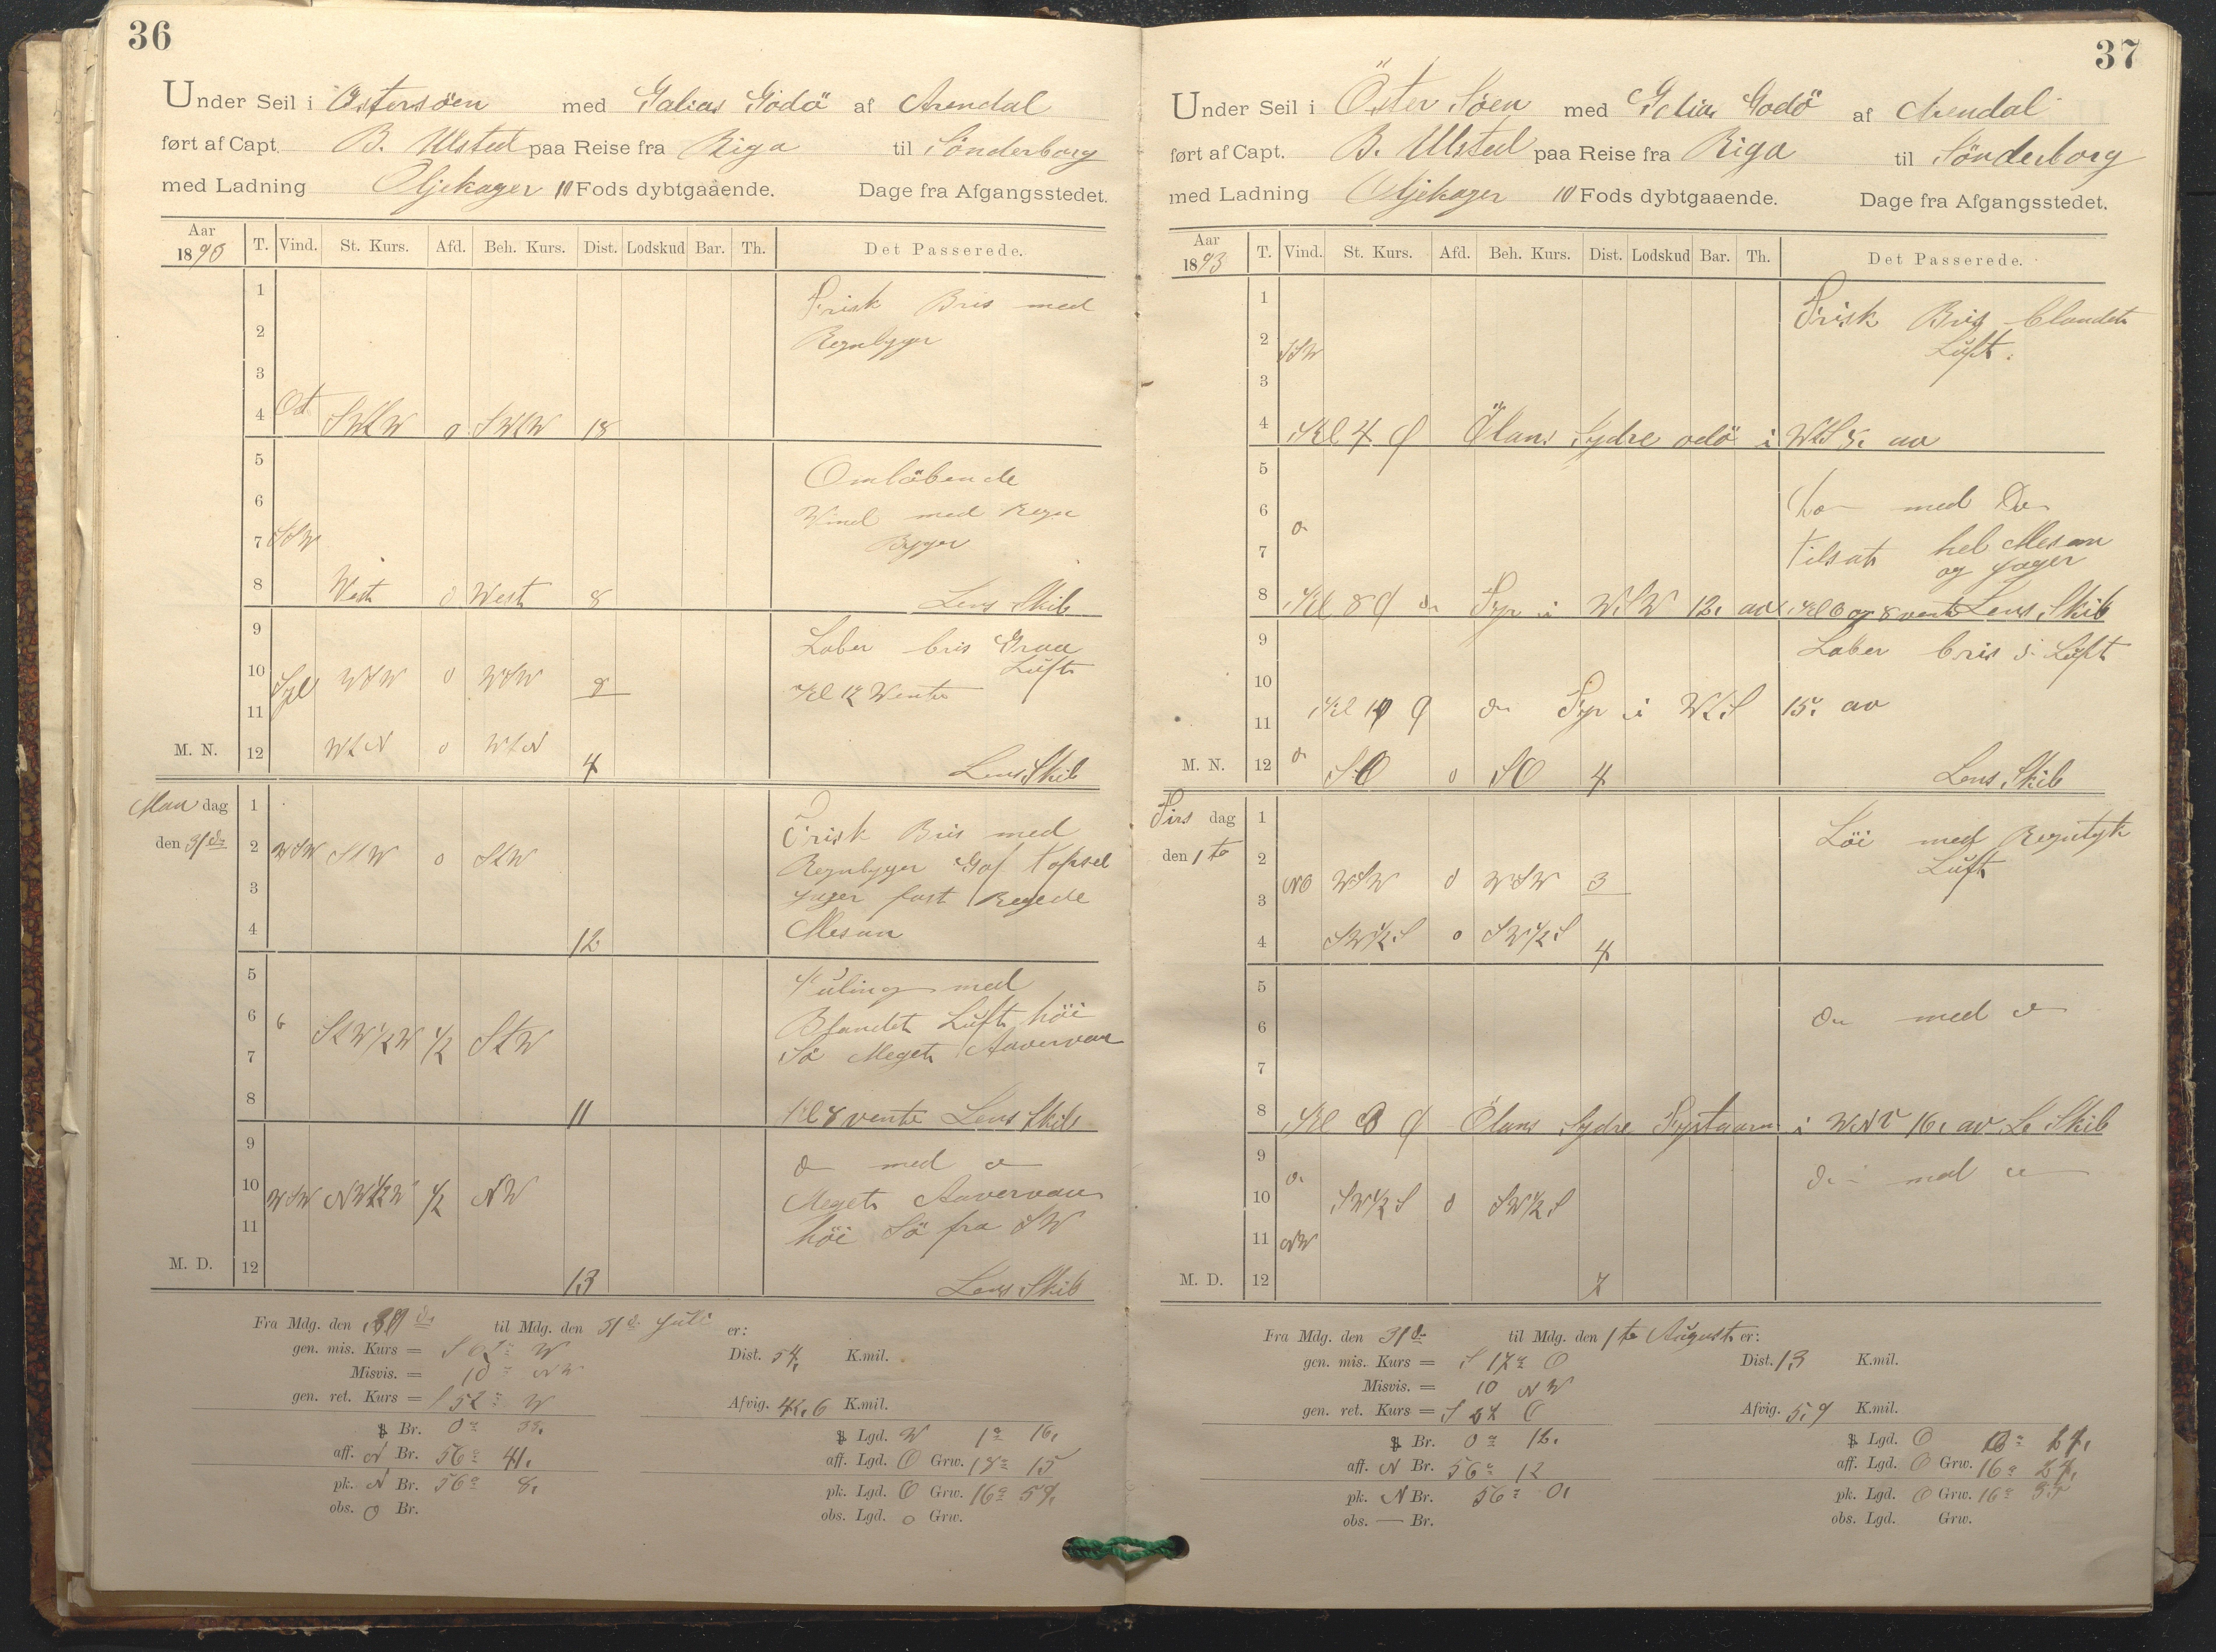 36
Under Seil i Østersøen med Galias Godö af Arendal
ført af Capt. B. Ulsted paa Reise fra Riga til Sönderborg
med Ladning Oljekager 10 Fods dybtgaaende. Dage fra Afgangsstedet.
Aar 1890 T. Vind. St. Kurs. Afd. Beh. Kurs. Dist. Lodskud Bar. Th. Det Passerede.
1 Frisk Bris med
2 Regnbyger
3
4 Ost SWtW o SWtW 18
5 Omlöbende
6 Wind med Regn
7 SSW Byger
8 West o West 8 Lens Skib
9 Laber bris Graa
10 WSW o WSW 8 Luft
11 Kl 12 Wente
M. N. 12 WtN o WtN 4 Lens Skib
Mandag 1 Frisk Bris med
den 31de 2 WSW StW o StW Regnbyger Gaf Topsel
3 Jager fast Regede
4 12 Mesan
5 Kuling med
6 StW1/2W 1/2 StW Blandet Luft höi
7 Sö Meget Aavervan
8 11 Kl 8 vente Lens Skib
9 do med do
10 WSW 1/2 NW Meget Aavervan
11 höi Sö fra SW
M. D. 12 13 Lens Skib
Fra Mdg. den til Mdg. den 31de Juli er:
gen. mis. Kurs = S 62° W Dist. 54, K.mil.
Misvis. = 10° NW
gen. ret. Kurs = S 52° W Afvig. 42,6 K.mil.
Br. 0° 33, Lgd. W 1° 16,
aff. N Br. 56° 41, aff. Lgd. O Grw. 18° 15
pk. N Br. 56° 8, pk. Lgd. O Grw. 16° 59,
obs. o Br. obs. Lgd. o Grw.
37
Under Seil i Öster Söen med Galias Godö af Arendal
ført af Capt. B. Ulsted paa Reise fra Riga til Sönderborg
med Ladning Oljekager 10 Fods dybtgaaende. Dage fra Afgangsstedet.
Aar 1893 T. Vind. St. Kurs. Afd. Beh. Kurs. Dist. Lodskud Bar. Th. Det Passerede.
1 Frisk Bris blandet
2 SSW Luft.
3
4 Kl 4 Ölans Sydre odö i WtS av
5
6 med Do
7 Tilsat hel Mesan
og Jager
8 Kl 8 do Fyr i WSW 12, av Kl 6 og 8 vente Lens Skib
9 Laber bris Luft
10
11 Kl do Fyr i WtS 15, av
M. N. 12 SO o SO 4 Lens Skib
Tirsdag 1 Löi med Regntyk
den 1te 2 Luft
3 NO WSW o WSW 3
4 SW1/2S o SW1/2S 4
5
6 do med do
7
8 Kl 8 Ölans Sydre Fyrtaarn i 16, av L. Skib
9 do med do
10 SW1/2S o SW1/2S
11 NW
M. D. 12 7
Fra Mdg. den 31de til Mdg. den 1te August er:
gen. mis. Kurs = S 17° O Dist. 13 K.mil.
Misvis. = 10 NW
gen. ret. Kurs = S 27 O Afvig. 5,9 K.mil.
Br. 0° 12, Lgd. O
aff. N Br. 56° 12 aff. Lgd. O Grw. 16°
pk. N Br. 56° 0, pk. Lgd. O Grw. 16°
obs. — Br. obs. Lgd. Grw.